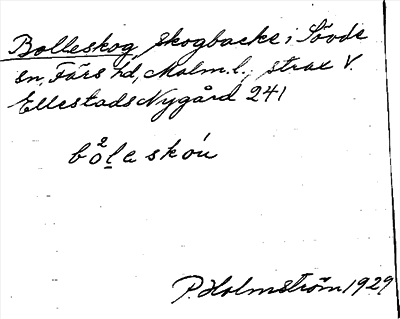 Bolleskog, skogbacke i Sövde
sn, Färs hd, Malm. l., strax V.
Ellestads Nygård 241
bo²lleskóu
P. Holmström 1929